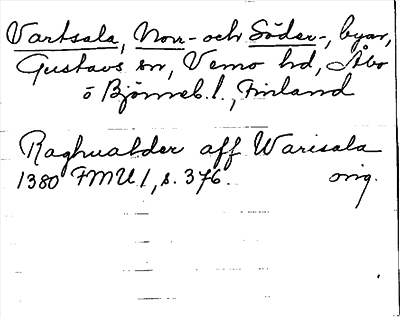 Vartsala, Norr- och Söder-, byar,
Gustavs sn, Vemo hd, Åbo
o Björneb. l., Finland
Raghualder aff Warisala
1380 FMU 1, s. 376. orig.